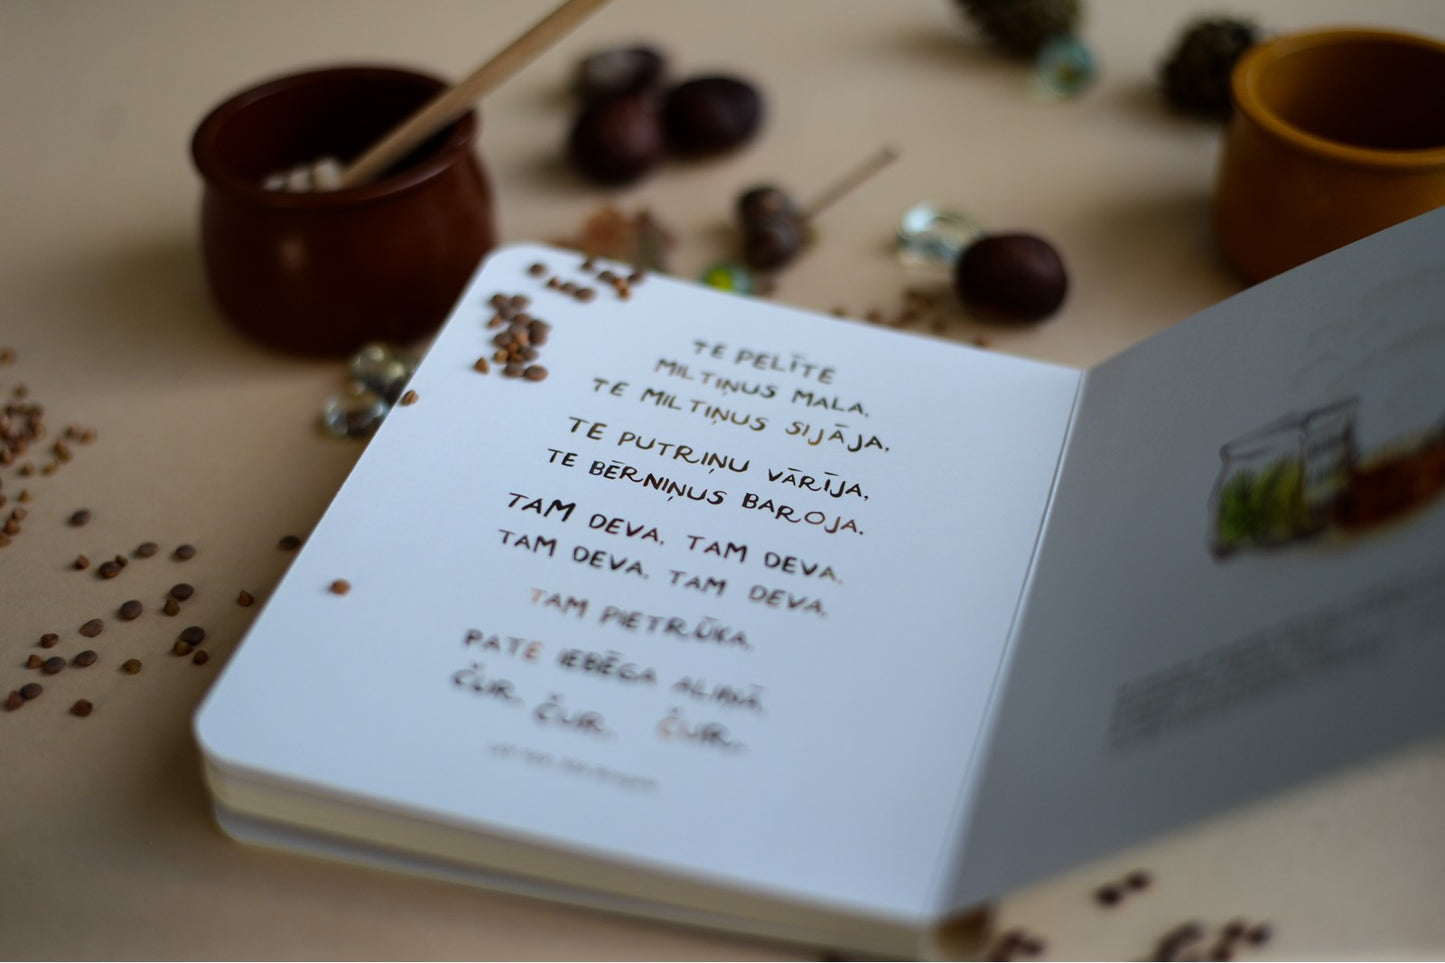 TE PELĪTE
MILTIŅUS MALA,
TE MILTIŅUS SIJĀJA,
TE PUTRIŅU VĀRĪJA,
TE BĒRNIŅUS BAROJA.
TAM DEVA, TAM DEVA,
TAM DEVA, TAM DEVA,
TAM PIETRŪKA,
PATE IEBĒGA ALIŅĀ,
ČUR, ČUR, ČUR...